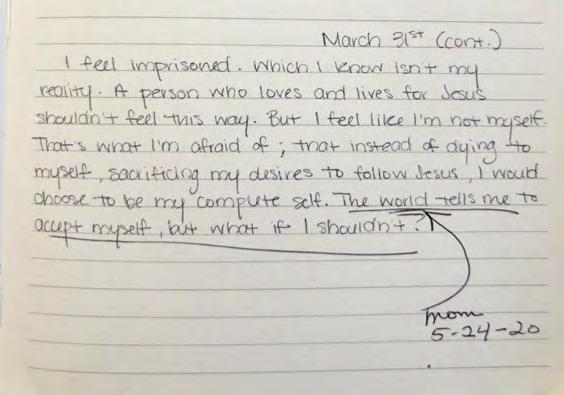 March 31st (cont.)
I feel imprisoned. Which I know isn't my
reality. A person who loves and lives for Jesus
shouldn't feel this way. But I feel like I'm not myself.
That's what I'm afraid of; that instead of dying to
myself, sacrificing my desires to follow Jesus, I would
choose to be my complete self. The world tells me to
accept myself, but what if I shouldn't?
mom
5-24-20